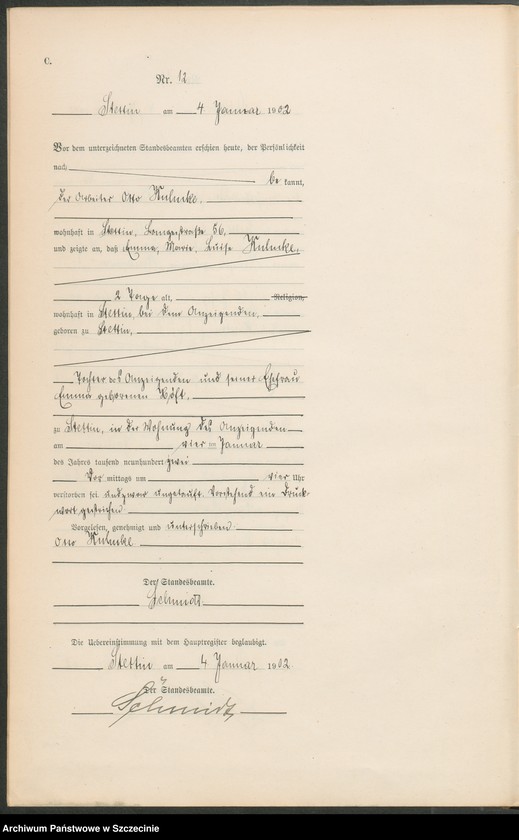 C.
Nr. 12
Stettin am 4 Januar 1902
Vor dem unterzeichneten Standesbeamten erschien heute, der Persönlichkeit
nach
be kannt,
der Arbeiter Otto
wohnhaft in Stettin, Langestraße 56,
und zeigte an, daß Emma, Marie, Luise
2 Tage alt, Religion,
wohnhaft in Stettin, bei dem Anzeigenden,
geboren zu Stettin,
Tochter des Anzeigenden und seiner Ehefrau
Emma geborenen
zu Stettin, in der Wohnung des Anzeigenden
am vier ten Januar
des Jahres tausend neunhundert zwei
Vor mittags um vier Uhr
verstorben sei und zwar ungetauft. Vorstehend ein Druck-
wort gestrichen
Vorgelesen, genehmigt und unterschrieben
Otto
Der Standesbeamte.
Schmidt
Die Uebereinstimmung mit dem Hauptregister beglaubigt.
Stettin am 4 Januar 1902
Der Standesbeamte.
Schmidt
Archiwum Państwowe w Szczecinie